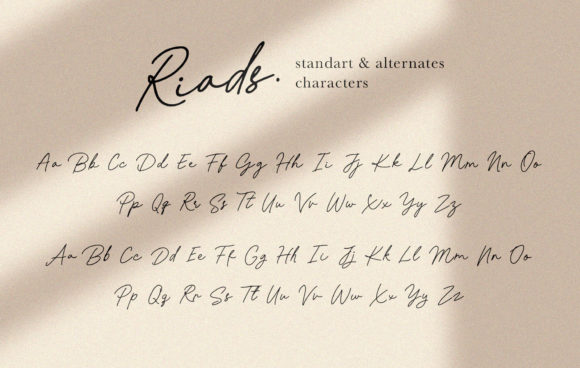 Riads.
standart & alternates
characters
Aa Bb Cc Dd Ee Ff Gg Hh Ii Jj Kk Ll Mm Nn Oo
Pp Qq Rr Ss Tt Uu Vv Ww Xx Yy Zz
Aa Bb Cc Dd Ee Ff Gg Hh Ii Jj Kk Ll Mm Nn Oo
Pp Qq Rr Ss Tt Uu Vv Ww Xx Yy Zz